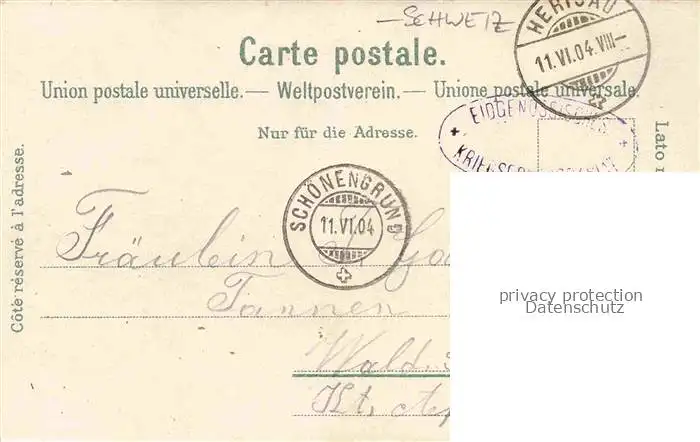 — SCHWEIZ
HERISAU
11.VI.04.VIII—
Carte postale.
Union postale universelle. — Weltpostverein. — Unione postale universale.
EIDGENÖSSISCHES
Nur für die Adresse.
Lato
Côté réservé à l'adresse.
SCHÖNENGRUND
11.VI.04
Fräulein
Tannen
Wald
Kt.
privacy protection
Datenschutz